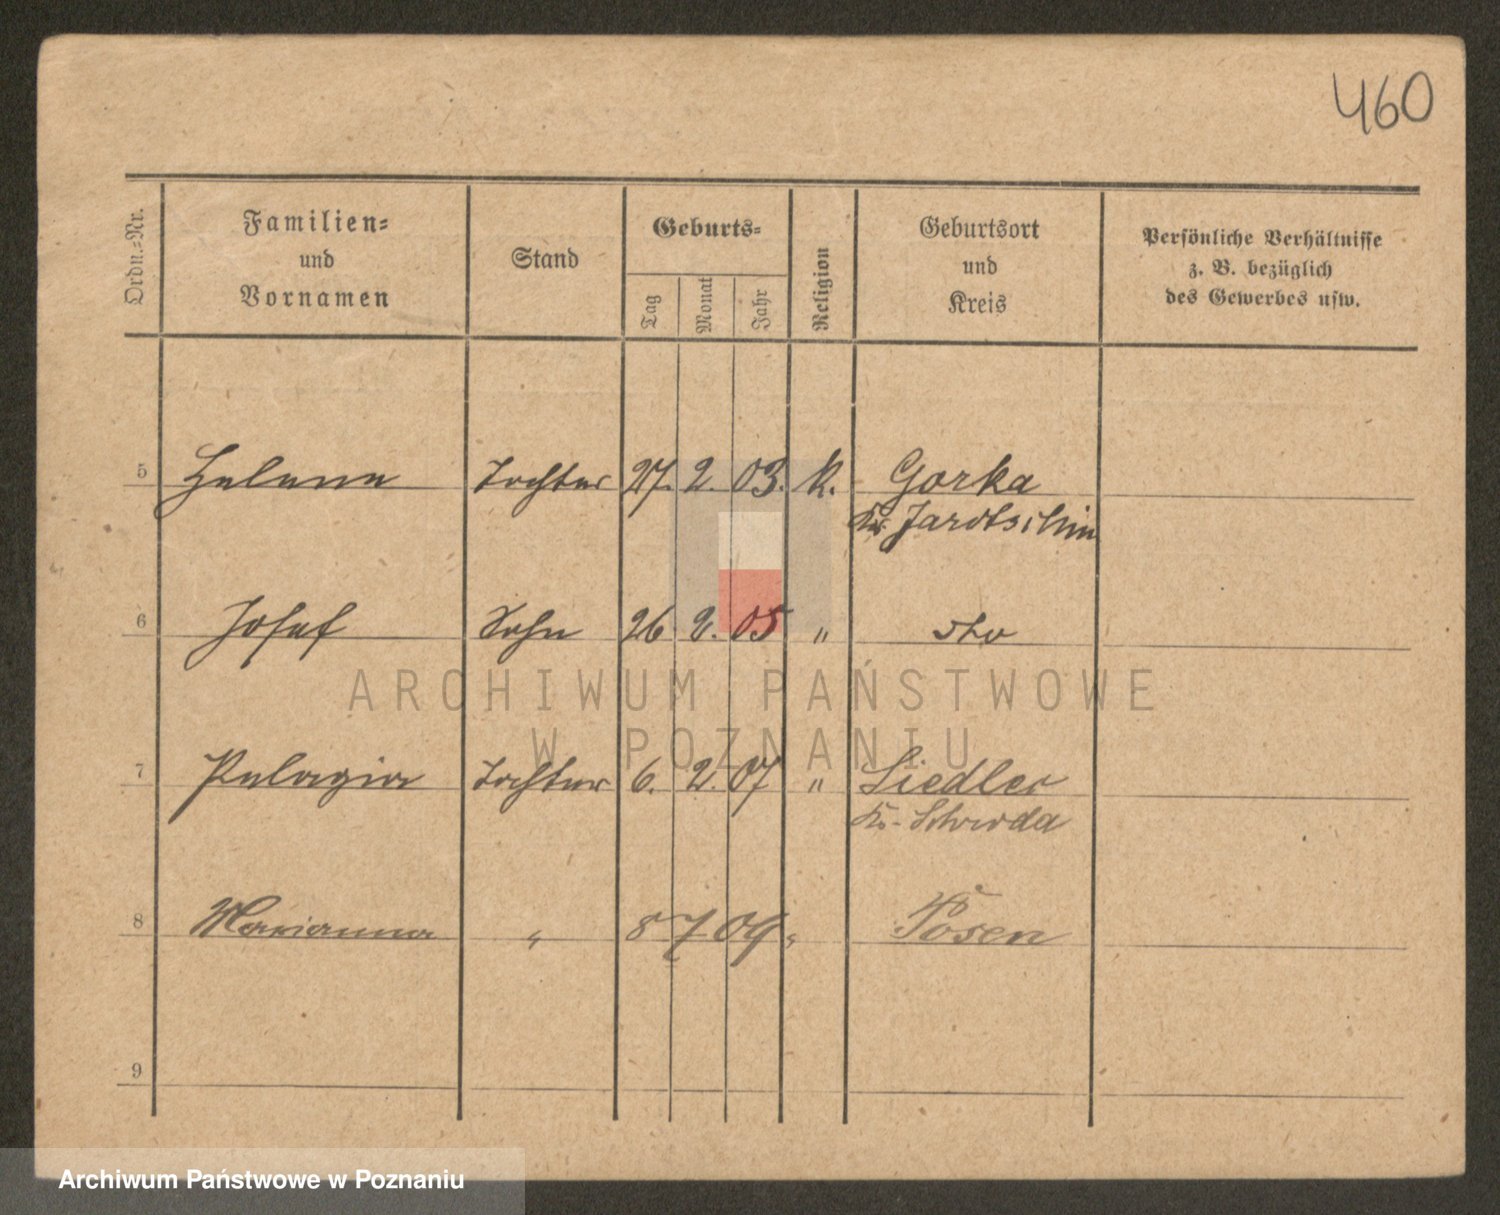 460
Ordn.-Nr.
Familien-
und
Vornamen
Stand
Geburts-
Tag
Monat
Jahr
Religion
Geburtsort
und
Kreis
Persönliche Verhältnisse
z. B. bezüglich
des Gewerbes usw.
5 Helene Tochter 27. 2. 03. K. Gorka
Kr. Jarotschin
6 Josef Sohn 26. 2. 05 " dto
ARCHIWUM PAŃSTWOWE
W POZNANIU
7 Pelagia Tochter 6. 2. 07 " Siedlec
Kr. Schroda
8 Marianna " 8 7 09 " Posen
9
Archiwum Państwowe w Poznaniu